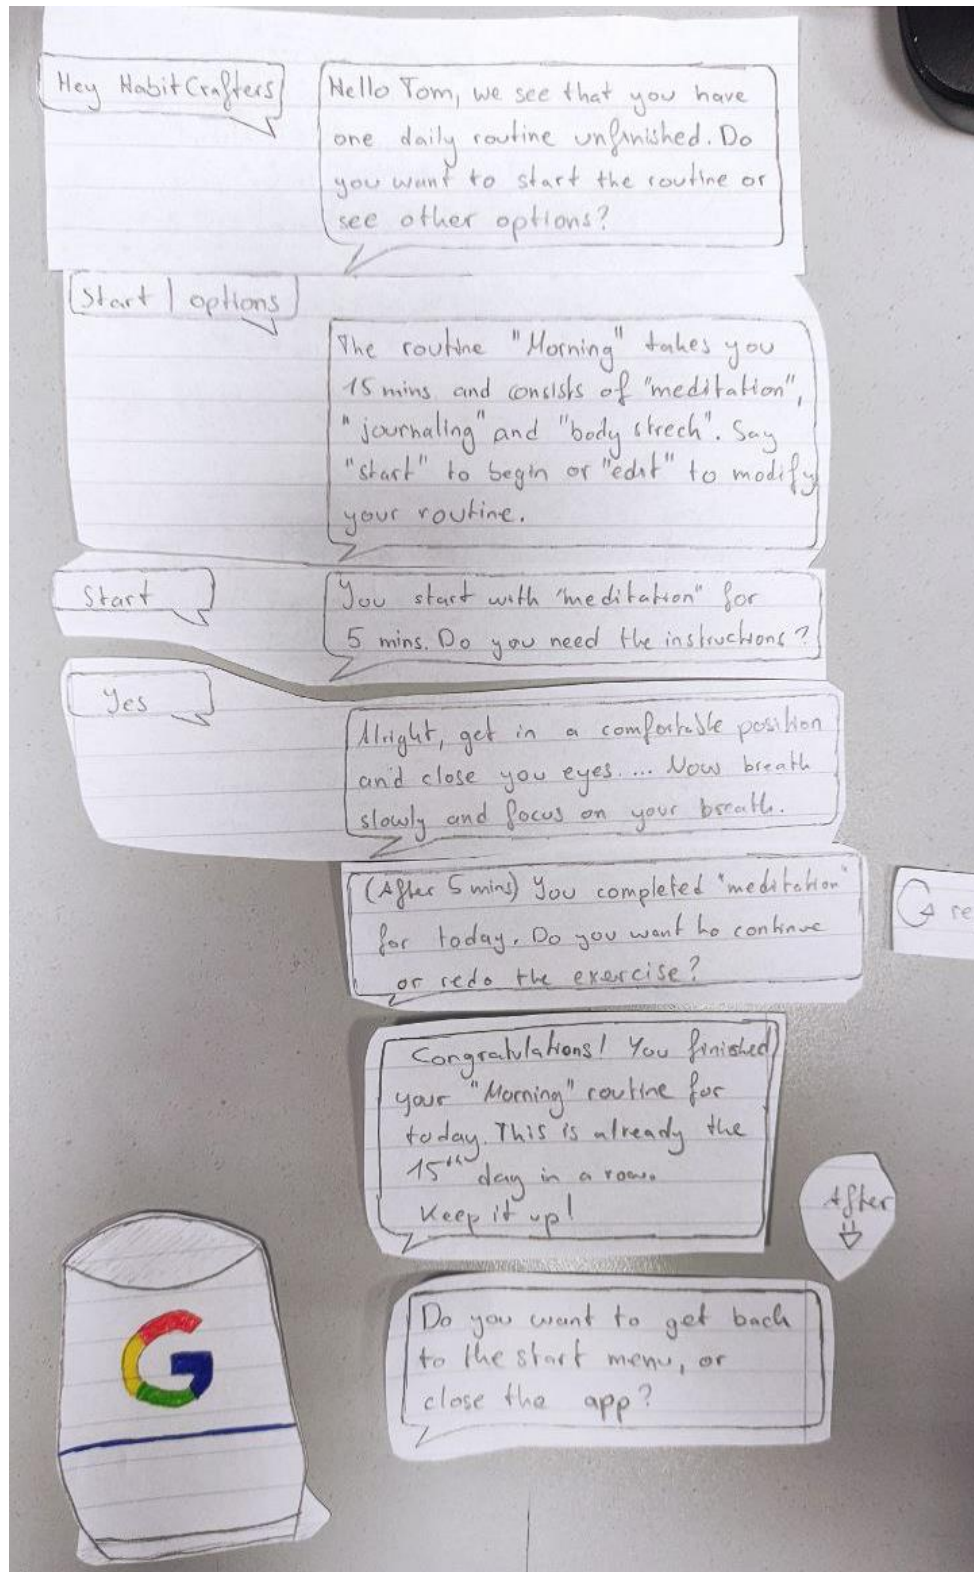 Hey HabitCrafters
Hello Tom, we see that you have
one daily routine unfinished. Do
you want to start the routine or
see other options?
Start | options
The routine "Morning" takes you
15 mins and consists of "meditation",
"journaling" and "body strech". Say
"start" to begin or "edit" to modify
your routine.
Start
You start with "meditation" for
5 mins. Do you need the instructions?
Yes
Alright, get in a comfortable position
and close you eyes. ... Now breath
slowly and focus on your breath.
(After 5 mins) You completed "meditation"
for today. Do you want to continue
or redo the exercise?
re
Congratulations! You finished
your "Morning" routine for
today. This is already the
15th day in a row.
Keep it up!
After
Do you want to get back
to the start menu, or
close the app?
G